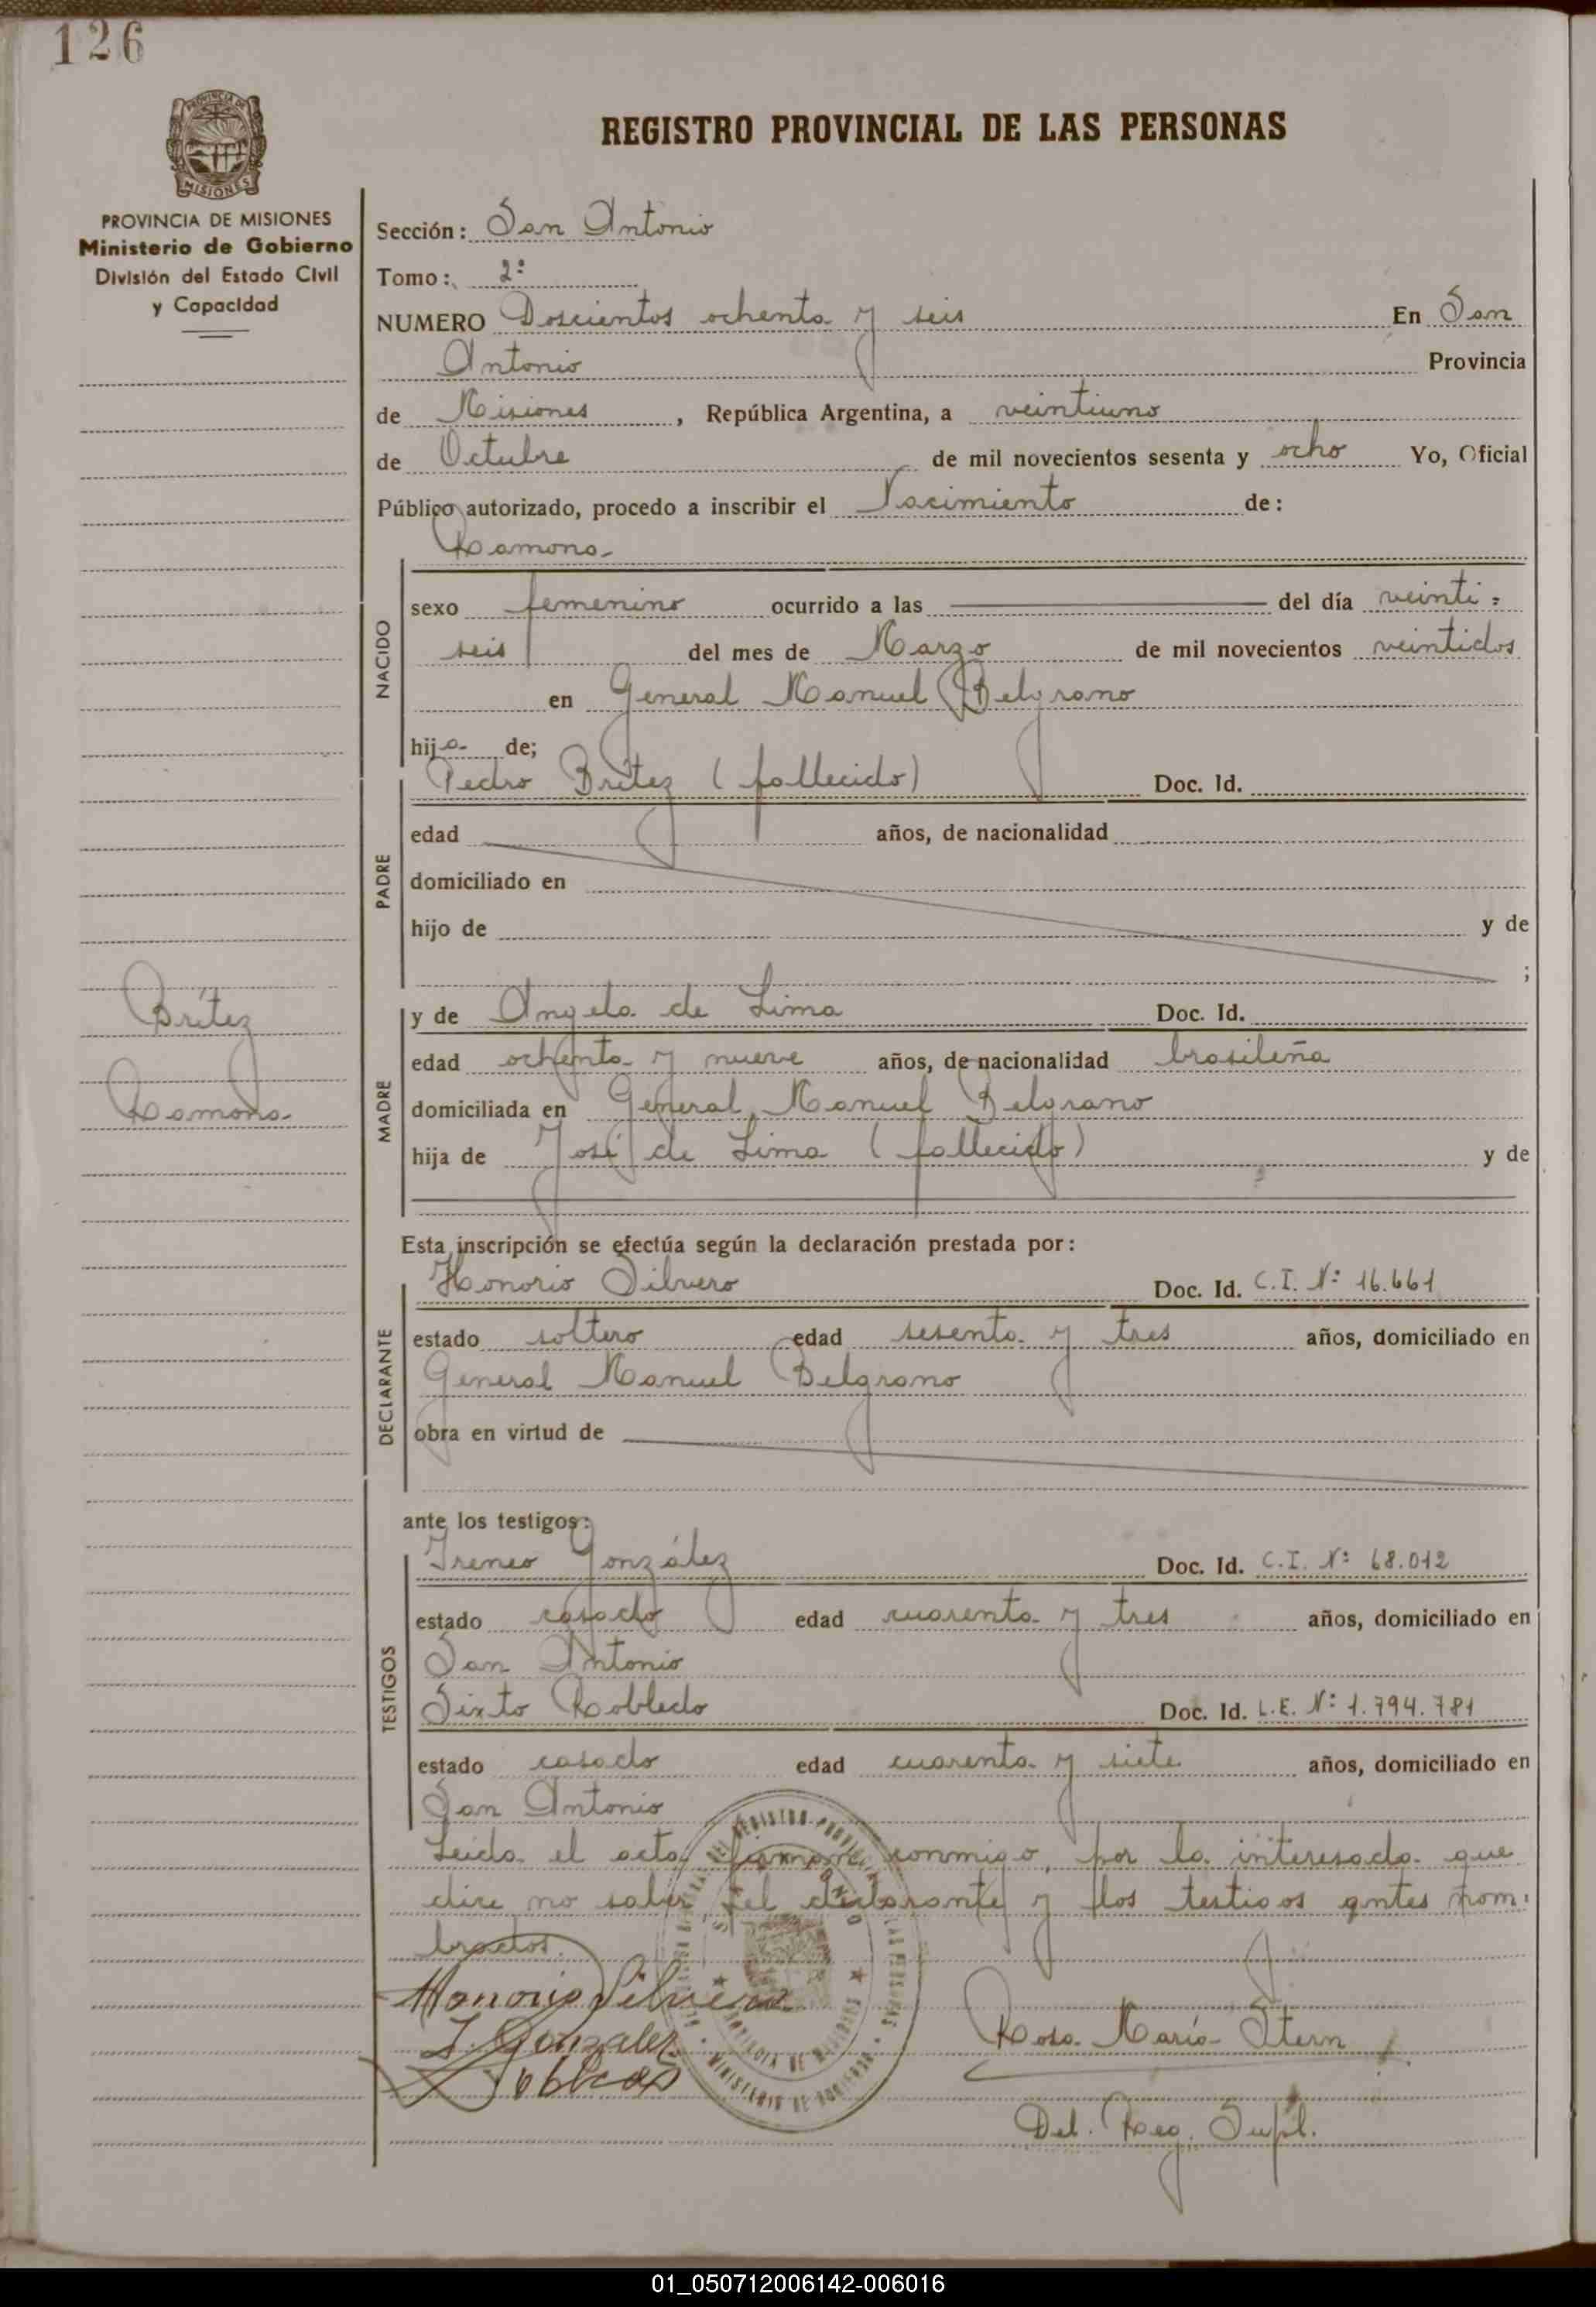 126
REGISTRO PROVINCIAL DE LAS PERSONAS
PROVINCIA DE MISIONES
Ministerio de Gobierno
División del Estado Civil
y Capacidad
Sección: San Antonio
Tomo: 2º
NUMERO Doscientos ochenta y seis En San
Antonio Provincia
de Misiones, República Argentina, a veintiuno
de Octubre de mil novecientos sesenta y ocho Yo, Oficial
Público autorizado, procedo a inscribir el Nacimiento de:
Ramona
NACIDO
sexo femenino ocurrido a las del día veinti=
seis del mes de Marzo de mil novecientos veintidos
en General Manuel Belgrano
hija de;
Pedro Brítez (fallecido) Doc. Id.
PADRE
edad años, de nacionalidad
domiciliado en
hijo de y de
;
Brítez
Ramona
MADRE
y de Angela de Lima Doc. Id.
edad ochenta y nueve años, de nacionalidad brasileña
domiciliada en General Manuel Belgrano
hija de José de Lima (fallecido) y de
Esta inscripción se efectúa según la declaración prestada por:
DECLARANTE
Honorio Silvero Doc. Id. C.I. Nº 16.661
estado soltero edad sesenta y tres años, domiciliado en
General Manuel Belgrano
obra en virtud de
ante los testigos:
TESTIGOS
Ireneo González Doc. Id. C.I. Nº 68.012
estado casado edad cuarenta y tres años, domiciliado en
San Antonio
Sixto Robledo Doc. Id. L.E. Nº 1.794.781
estado casado edad cuarenta y siete años, domiciliado en
San Antonio
Leída el acta, firman conmigo, por la interesada que
dice no saber, el declarante y los testigos antes nom=
brados.
Honorio Silvero
I. Gonzalez
Robledo
Rosa María Stern
Del. Reg. Supl.
MINISTERIO DE GOBIERNO
PROVINCIA DE MISIONES
01_050712006142-006016